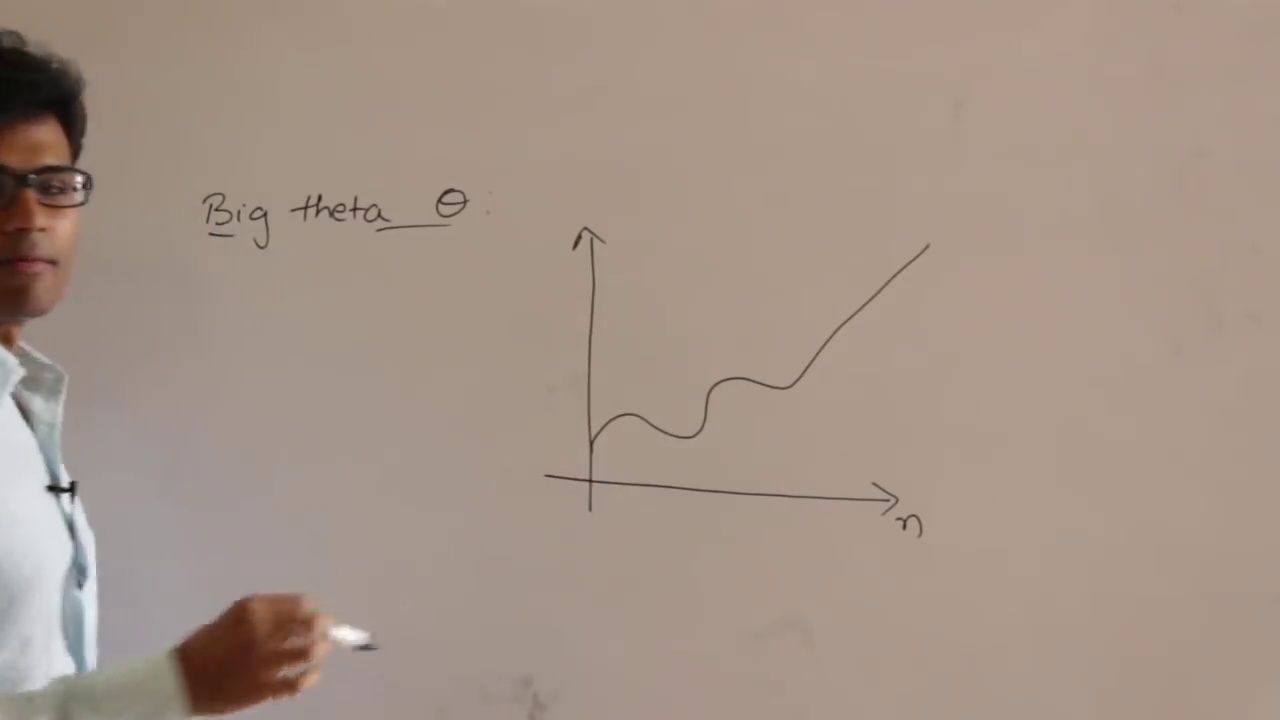 Big theta Θ:
n